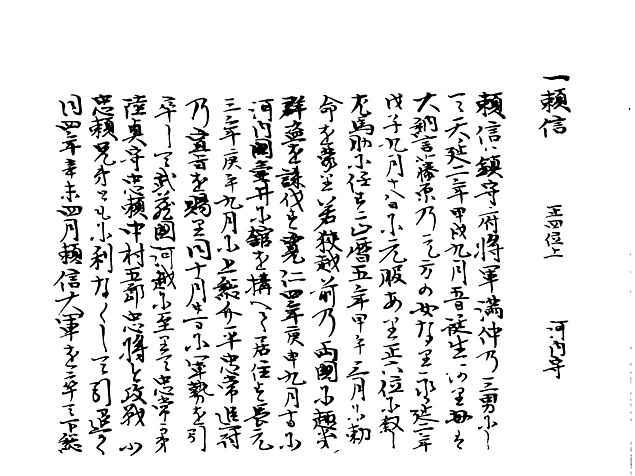 一頼信 正四位上 河内守
頼信鎮守府将軍満仲乃三男にし
て天延二年甲戌九月五日誕生 母は
大納言藤原乃元方の女なり永延二年
戊子九月十八日に元服あり正六位に叙し
左馬助に任す正暦五年甲午三月に勅
命を蒙り若狭越前乃両國に趣き
群盗を誅伐す寛仁四年庚申九月 に
河内國壷井に舘を構へて居住す長元
三年庚午九月に上総介平忠常追討
乃宣旨を賜り同十月廿一日に軍勢を引
率して武蔵國河越に至りて忠常 弟
陸奥守忠頼中村五郎忠將と攻戦 
忠頼兄弟ともに利なくして引退く
同四年辛未四月頼信大軍を率て下総